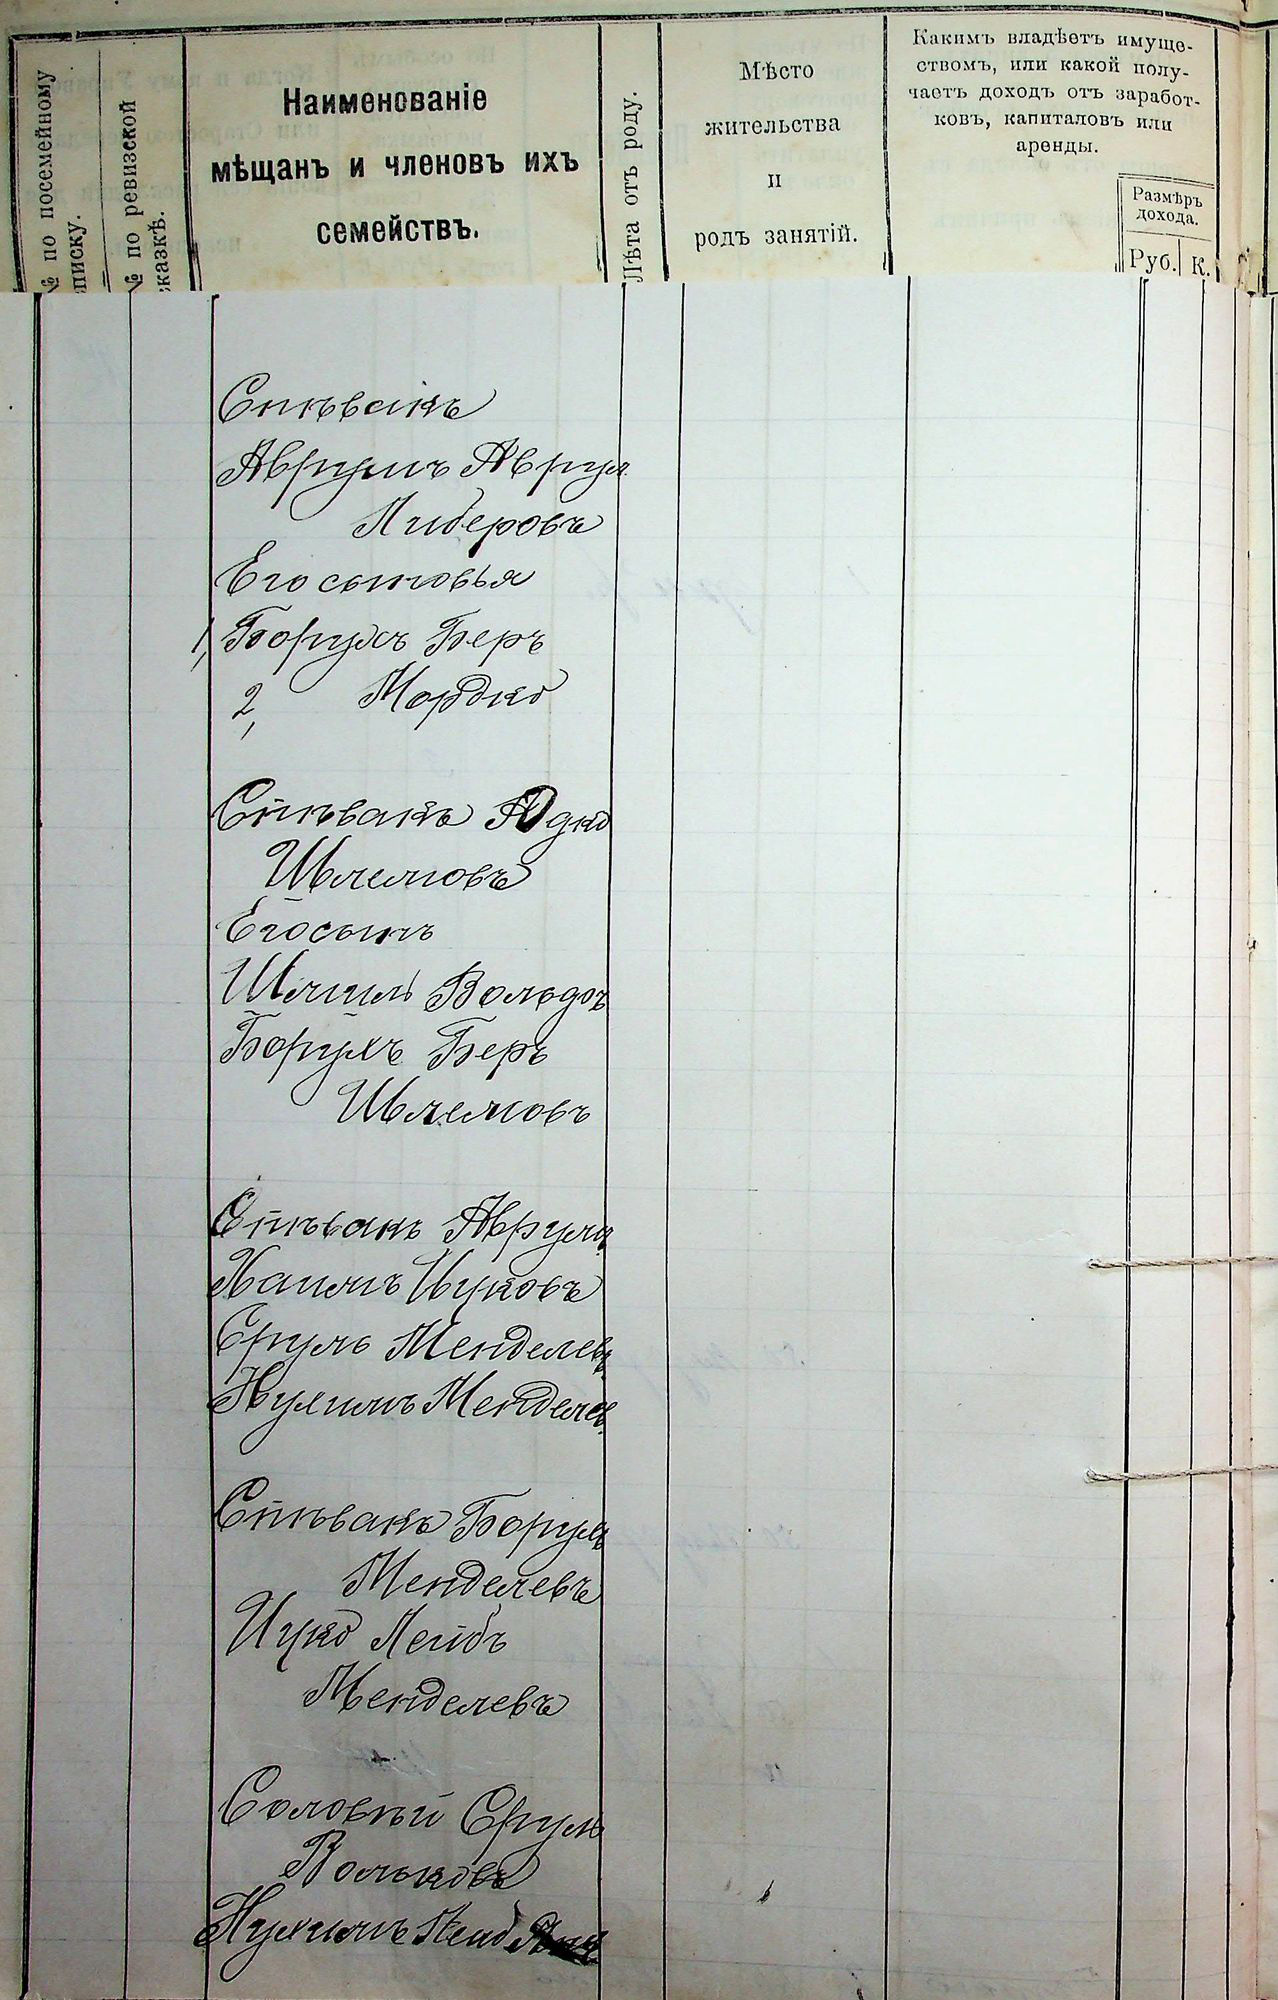 № по посемейному
списку.
№ по ревизской
сказкѣ.
Наименованіе
мѣщанъ и членовъ ихъ
семействъ.
Лѣта отъ роду.
Мѣсто
жительства
и
родъ занятій.
Какимъ владѣетъ имуще-
ствомъ, или какой полу-
чаетъ доходъ отъ заработ-
ковъ, капиталовъ или
аренды.
Размѣръ
дохода.
Руб. К.
Спѣвакъ
Аврумъ Аврул
Либеровъ
Его сыновья
1, Борухъ Беръ
2, Мордко
Спѣвакъ Юдко
Шлемовъ
Его сынъ
Шмиль Вольфъ
Борухъ Беръ
Шлемовъ
Спѣвакъ Аврумъ
Хаимъ Ицковъ
Сруль Менделевъ
Нухимъ Менделев
Спѣвакъ Борухъ
Менделевъ
Ицко Лейбъ
Менделевъ
Соловѣй Сруль
Вольковъ
Нухимъ Лейб